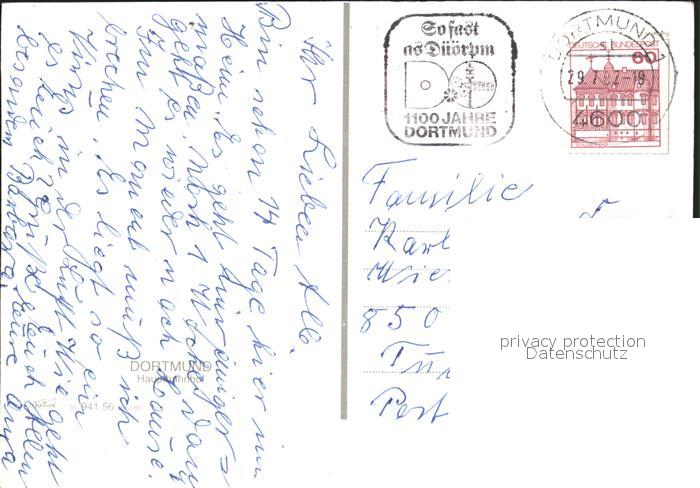 Ihr Lieben Alle.
Bin schon 14 Tage hier im
Heim. Es geht mir einiger=
maßen. Noch 1 Woche dann
geht es wieder nach Hause.
Im Moment muß ich
brechen. Es liegt so ein
in der Luft Wie geht
es Euch
Grüße Euch Allen
besonders Barbara. Eure
DORTMUND
Hauptbahnhof
So fast
as Düörpm
1100 JAHRE
DORTMUND
DORTMUND 1
29.7.82-18
4600
DEUTSCHE BUNDESPOST
60
Familie
Karl
Wie
850
Post
privacy protection
Datenschutz